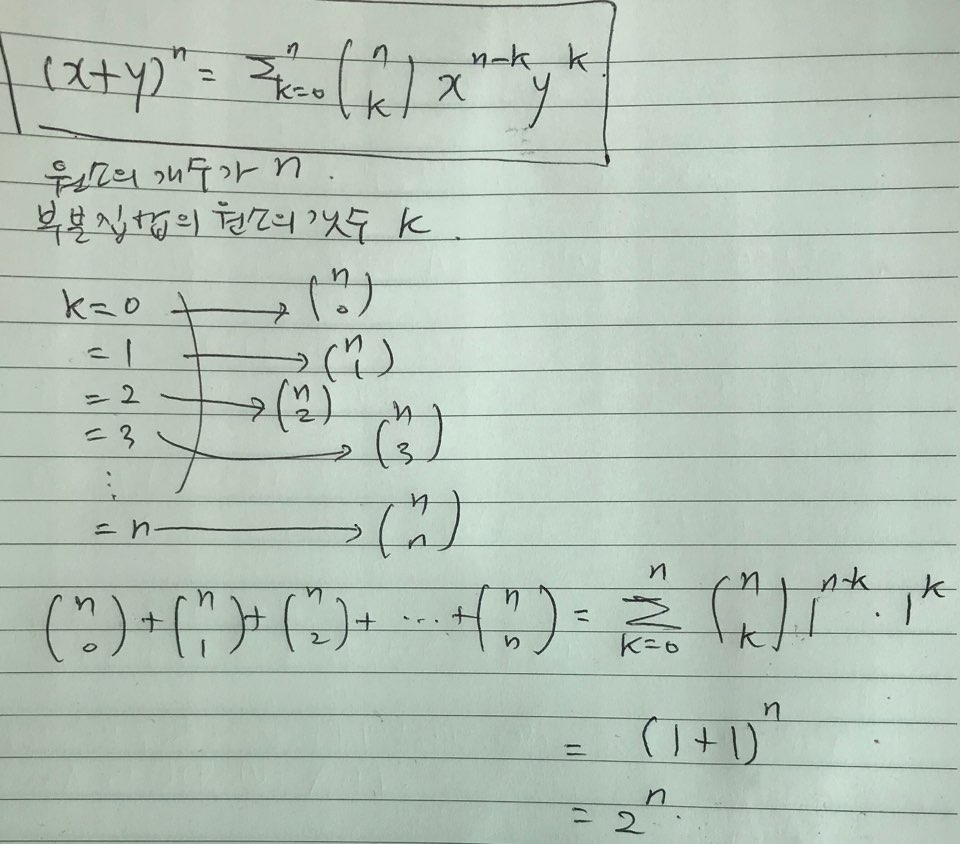 (x+y)^n = Σ_{k=0}^n (n k) x^{n-k} y^k
원소의 개수가 n.
부분집합의 원소의 갯수 k.
k=0 → (n 0)
=1 → (n 1)
=2 → (n 2)
=3 → (n 3)
⋮
=n → (n n)
(n 0)+(n 1)+(n 2)+ ⋯ +(n n) = Σ_{k=0}^n (n k) 1^{n-k} · 1^k
= (1+1)^n
= 2^n.